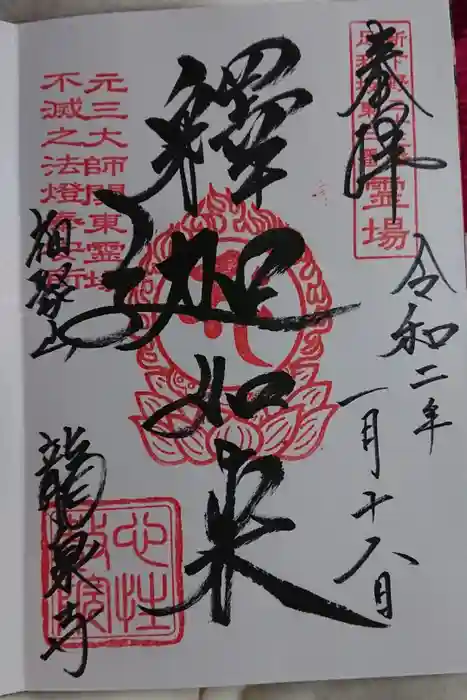 奉拝
令和二年
一月十八日
釋迦如来
元三大師関東霊場
不滅之法燈奉安所
龍泉寺